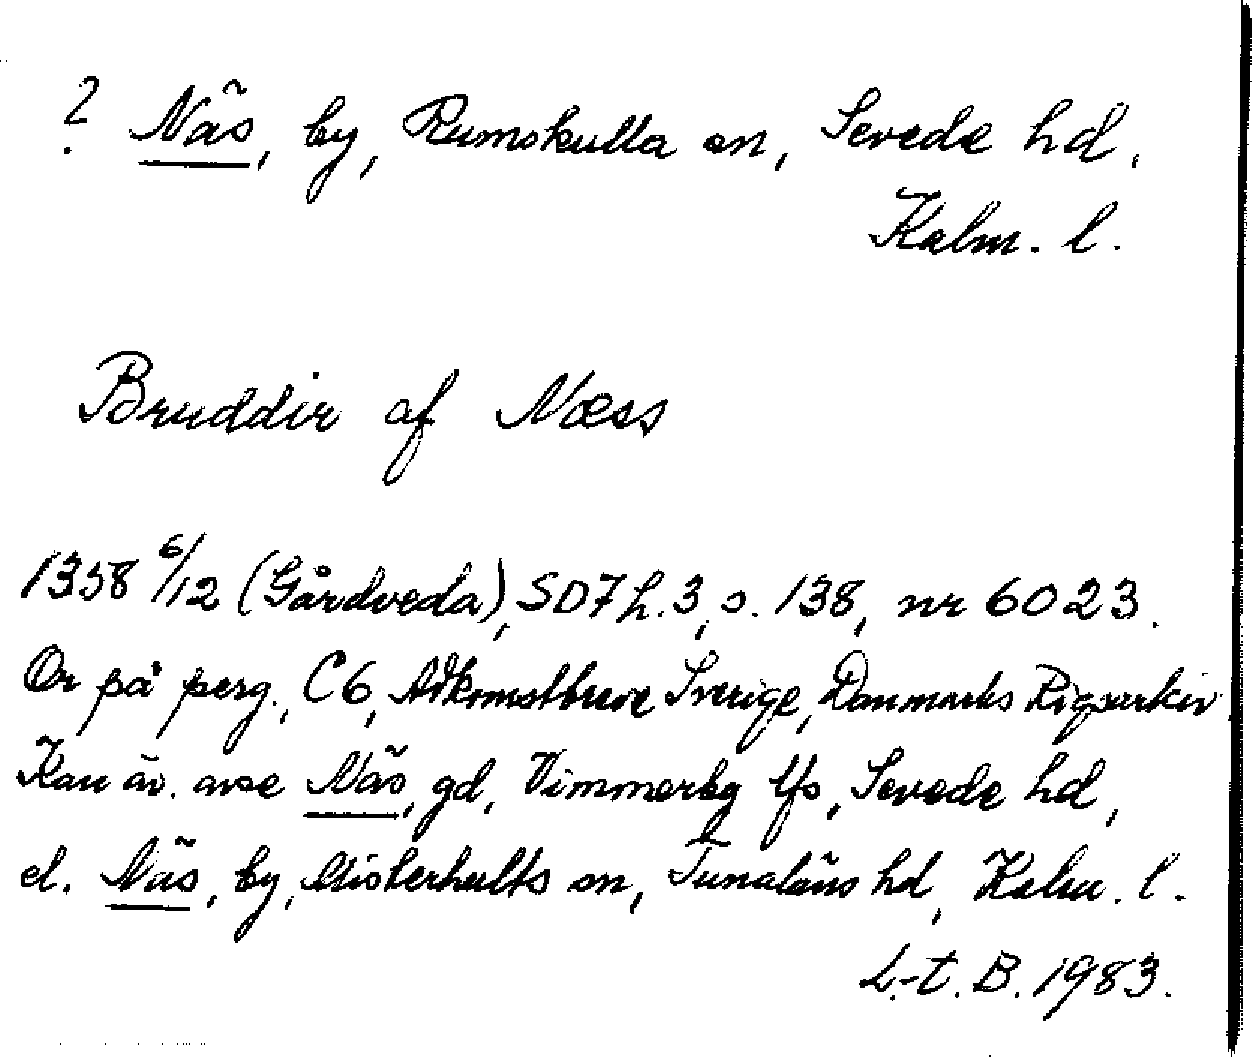 ? Näs, by, Rumskulla sn, Sevede hd,
Kalm. l.
Bruddir af Næss
1358 6/12 (Gårdveda), SD7 h. 3, s. 138, nr 6023.
Or på perg., C6, Adkomstbreve Sverige, Danmarks Rigsarkiv
Kan äv. avse Näs, gd, Vimmerby lfs, Sevede hd,
el. Näs, by, Misterhults sn, Tunaläns hd, Kalm. l.
L-t. B. 1983.